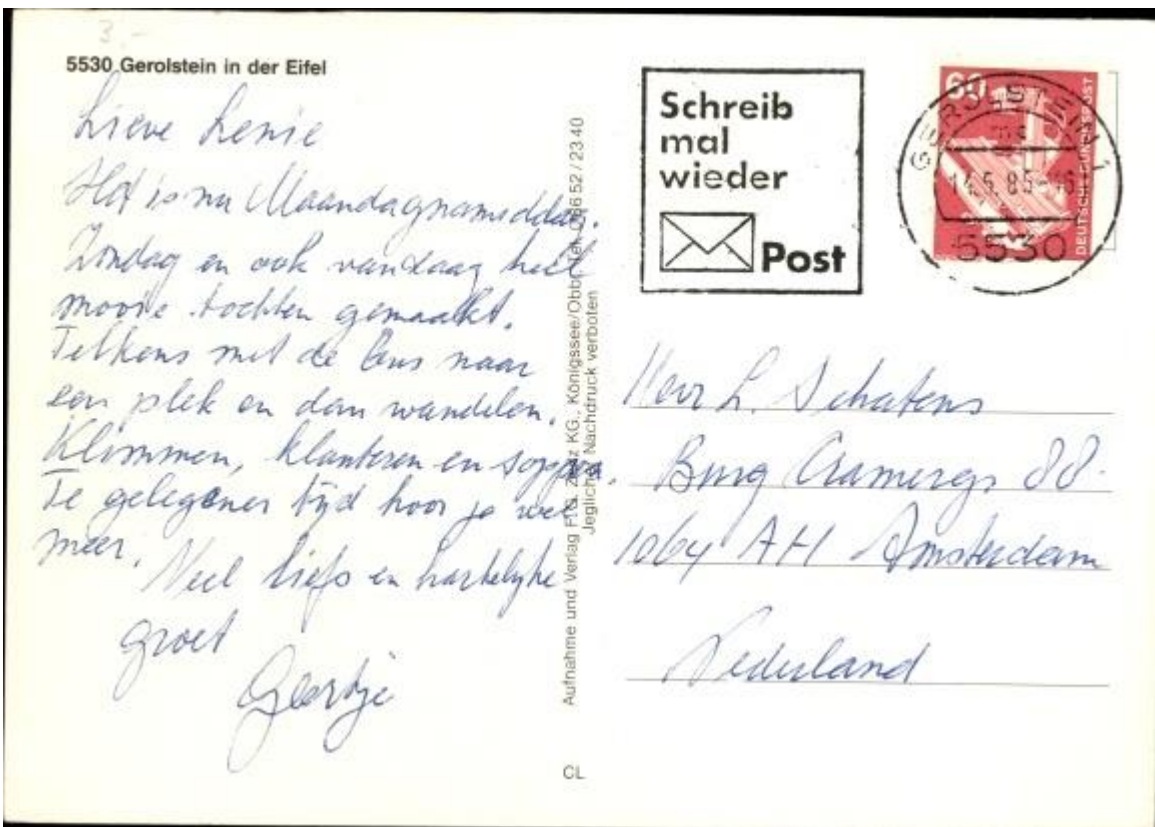 3.-
5530 Gerolstein in der Eifel
Lieve Lenie
Het is nu Maandagnamiddag.
Zondag en ook vandaag heel
mooie tochten gemaakt.
Telkens met de bus naar
een plek en dan wandelen.
Klimmen, klauteren en
Te gelegener tijd hoor je wel
meer.
Veel liefs en hartelijke
groet
Geertje
Aufnahme und Verlag KG., Königssee/Obb. Tel. 23 40
Jeglicher Nachdruck verboten
CL
Schreib
mal
wieder
Post
60
DEUTSCHE BUNDESPOST
GEROLSTEIN 1
14.5.85-16
5530
Herr L. Schatens
Burg Cramergs 88.
1064 AH Amsterdam
Nederland